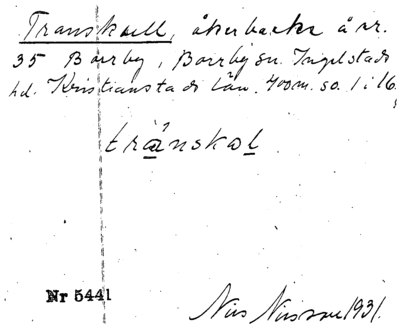 Transkoell, åkerbacke å nr.
35 Borrby, Borrby sn. Ingelstads
hd. Kristianstads län. 700 m. so. 1 i 16.
tránskol
Nr 5441
Nils Nilsson 1931.